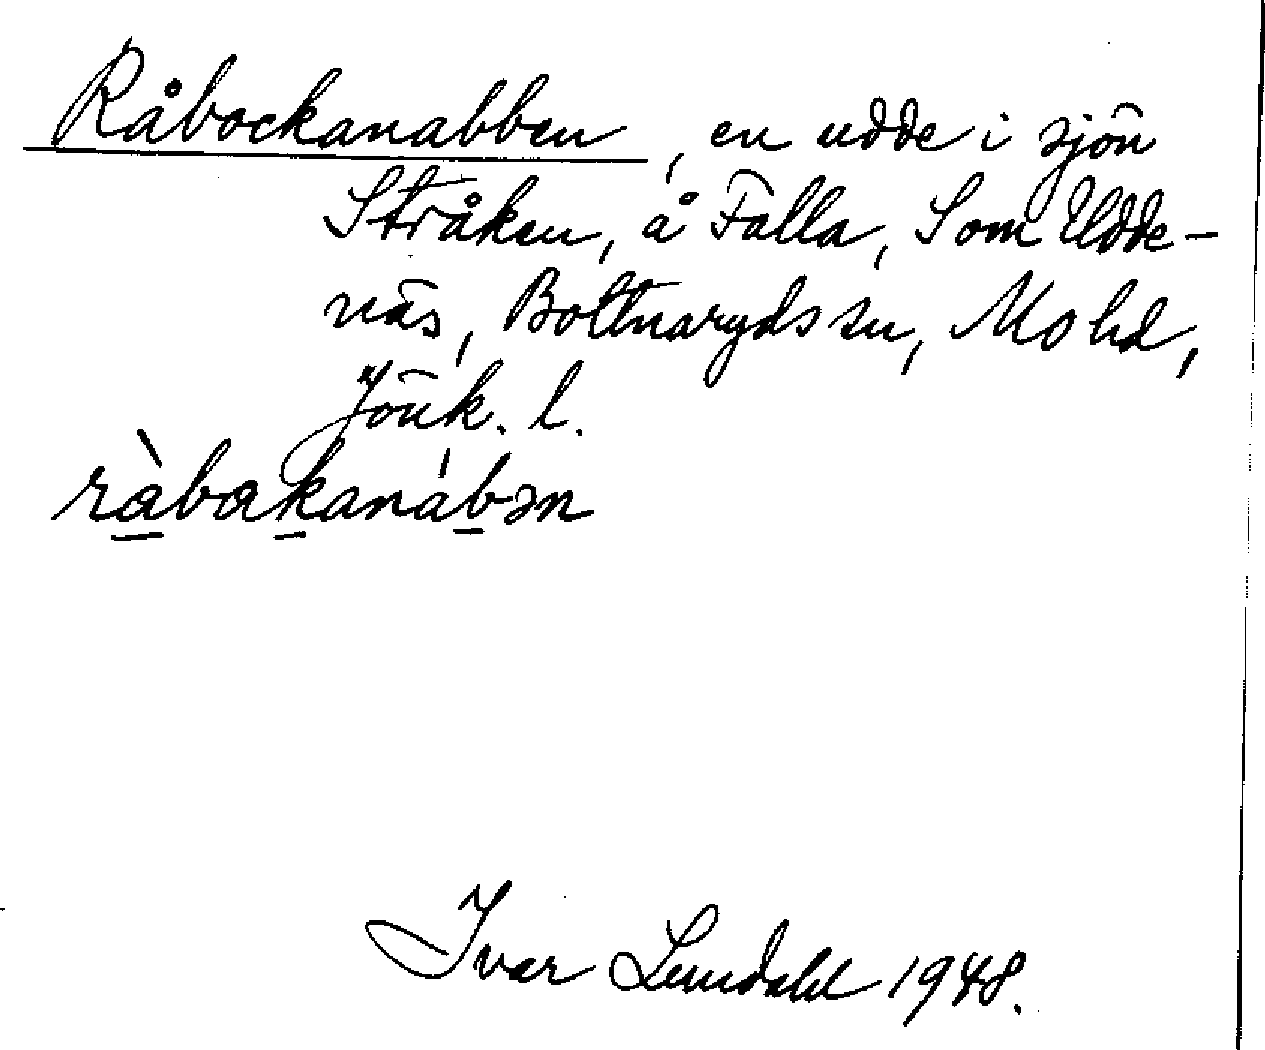 Råbockanabben, en udde i sjön
Stråken, å Falla, Som Udde-
näs, Bottnaryds sn, Mo hd,
Jönk. l.
ràbakanábən
Ivar Lundahl 1948.